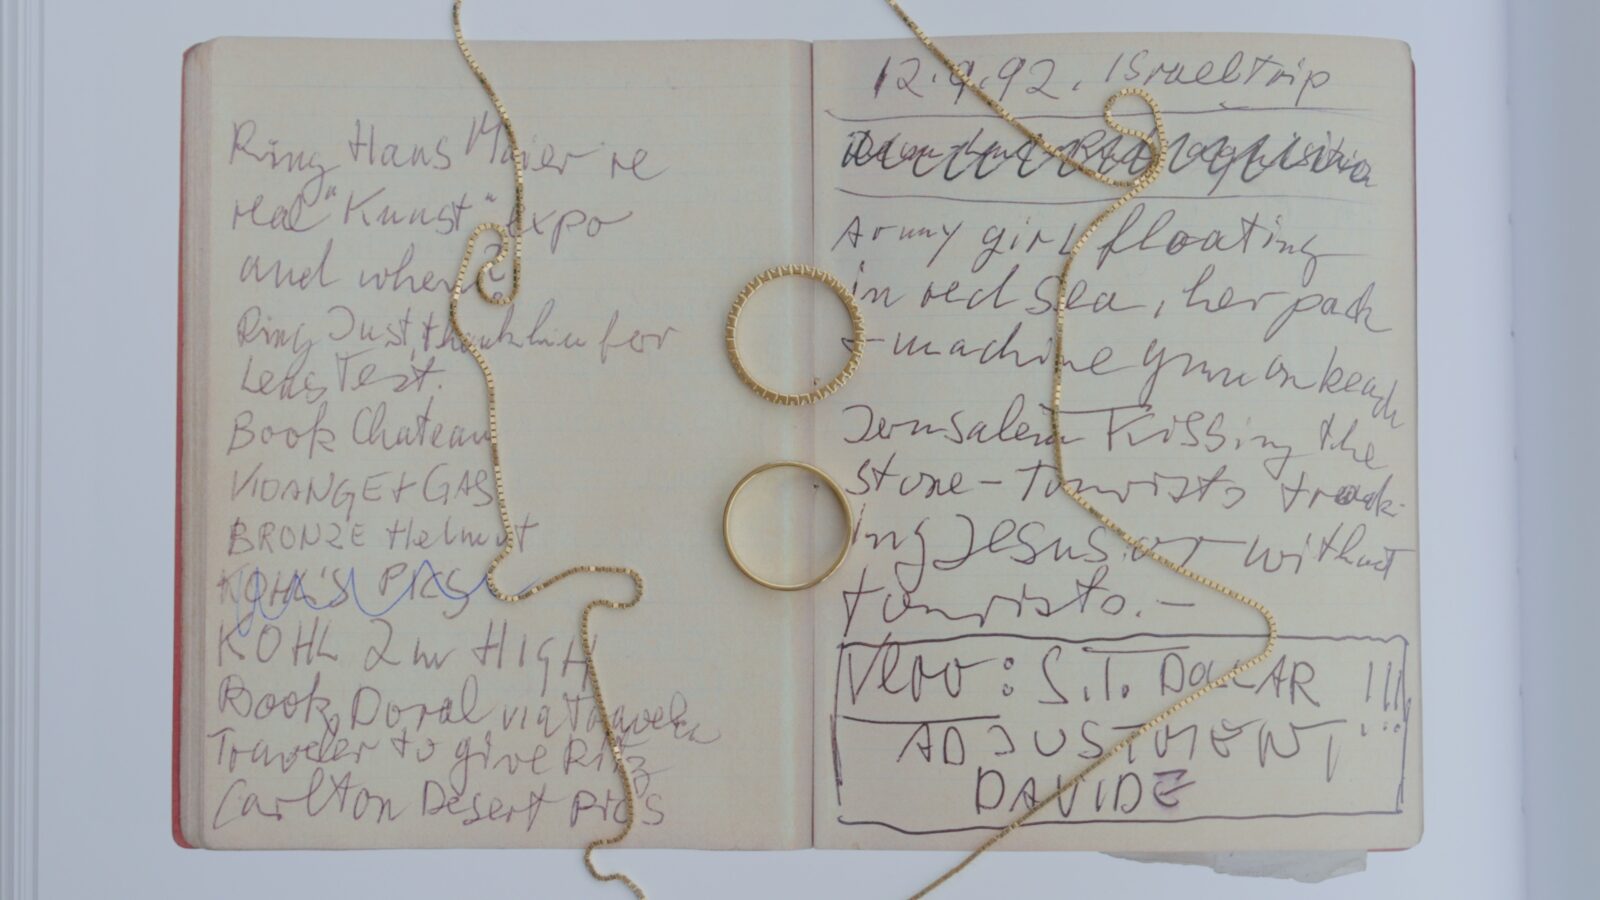 Ring Hans Maier re
real "Kunst" expo
and when?
Ring Just, thank him for
Lens Test.
Book Chateau
VIDANGE + GAS
BRONZE Helmut
KOHL'S PICS
KOHL 2 IN HIGH
Book Doral via
Traveler to give Ritz
Carlton Desert Pics
12.9.92. Israel Trip
Army girl floating
in red Sea, her pack
+ machine gun on beach
Jerusalem Kissing the
stone - Tourists track-
ing JESUS. or without
tourists. -
: S.T. DOLLAR !!!
ADJUSTMENT !
DAVIDE